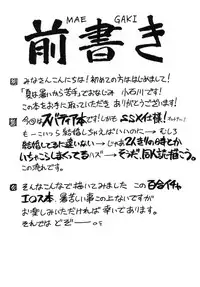 MAE GAKI
前書き
みなさんこんにちは！初めての方ははじめまして！
「夏は暑いから苦手」でおなじみ 小石川です！
この本をお手に取っていただき ありがとうございます！
今回はスパティア本です！しかもSSX仕様！
もーこいつら結婚しちゃえばいいのに → むしろ
結婚してるに違いない → じゃあ2人きりの時とか
いちゃこらしまくってるハズ → そうだ、同人誌描こう。
この流れです。
そんなこんなで描いてみました この百合イチャ
エロス本、暑苦しい事この上ないですが
お楽しみいただければ幸いであります。
それでは どぞー